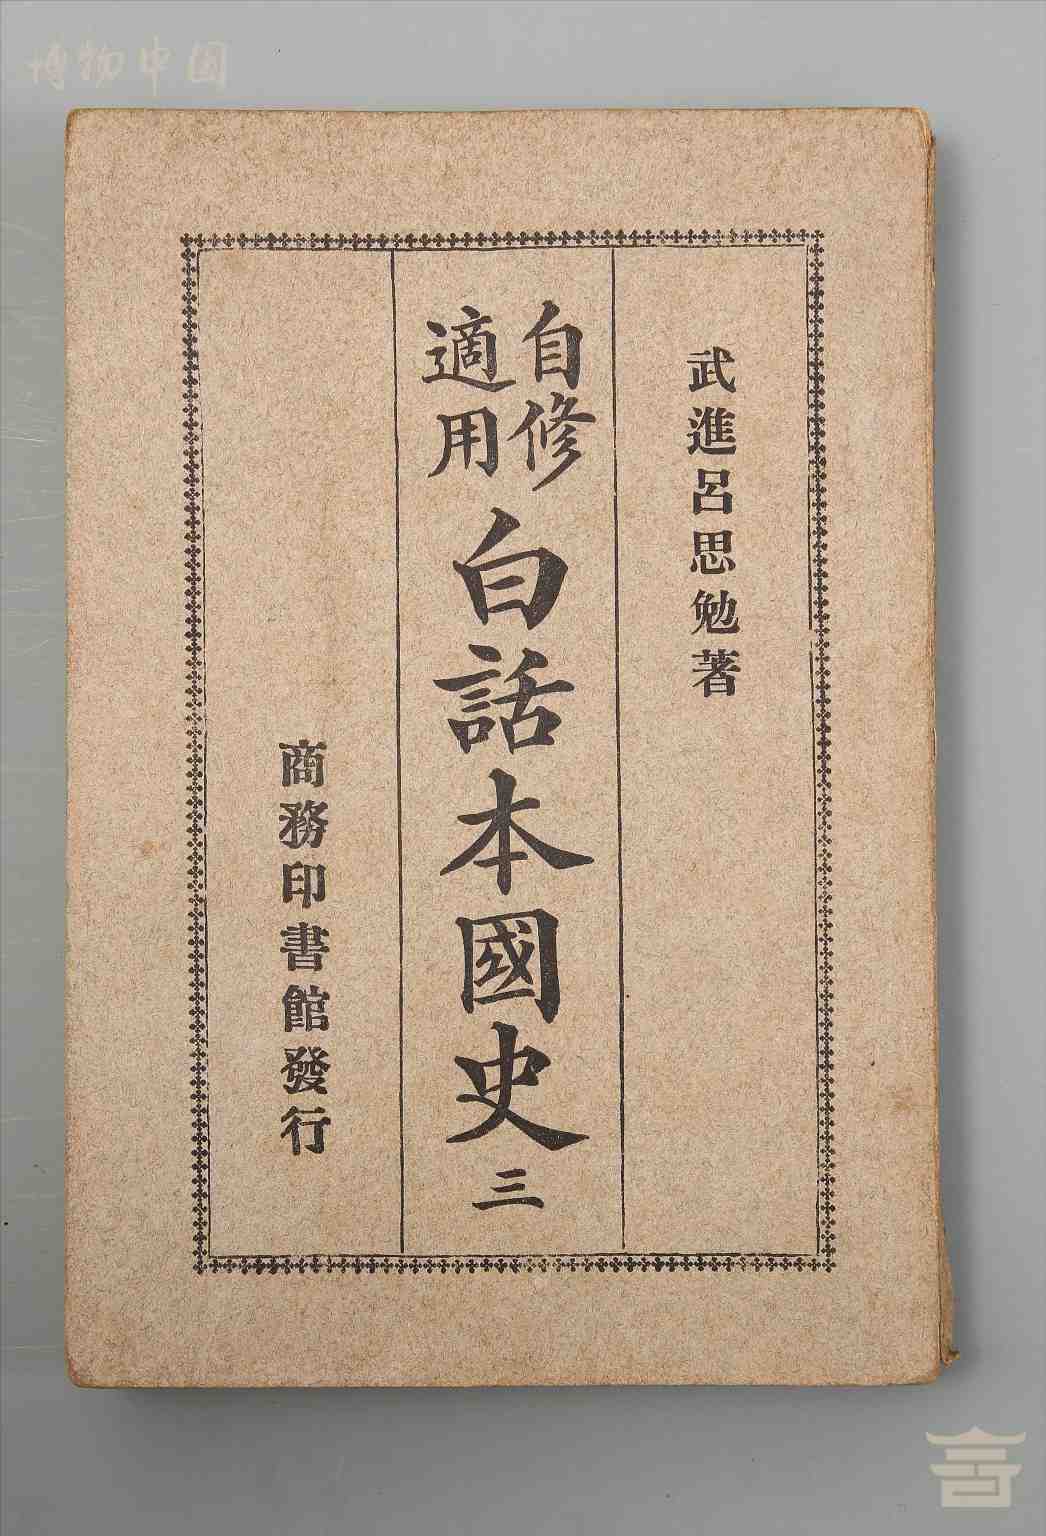 博物中国
武進呂思勉著
自修
適用
白話本國史
三
商務印書館發行